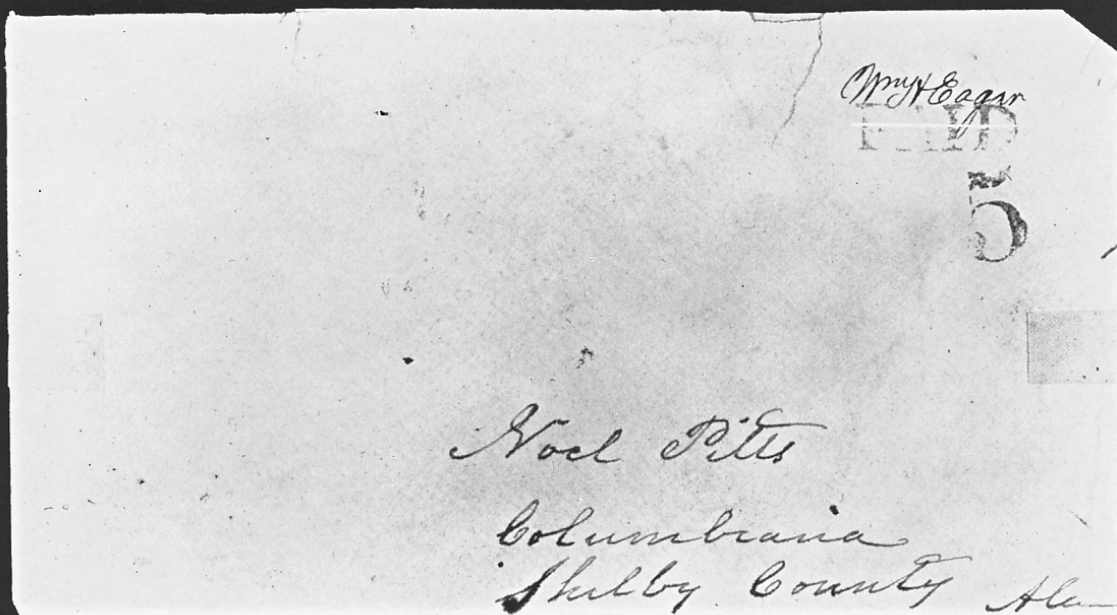 Wm H Eagar
PAID
5
Noel Pitts
Columbiana
Shelby County Ala